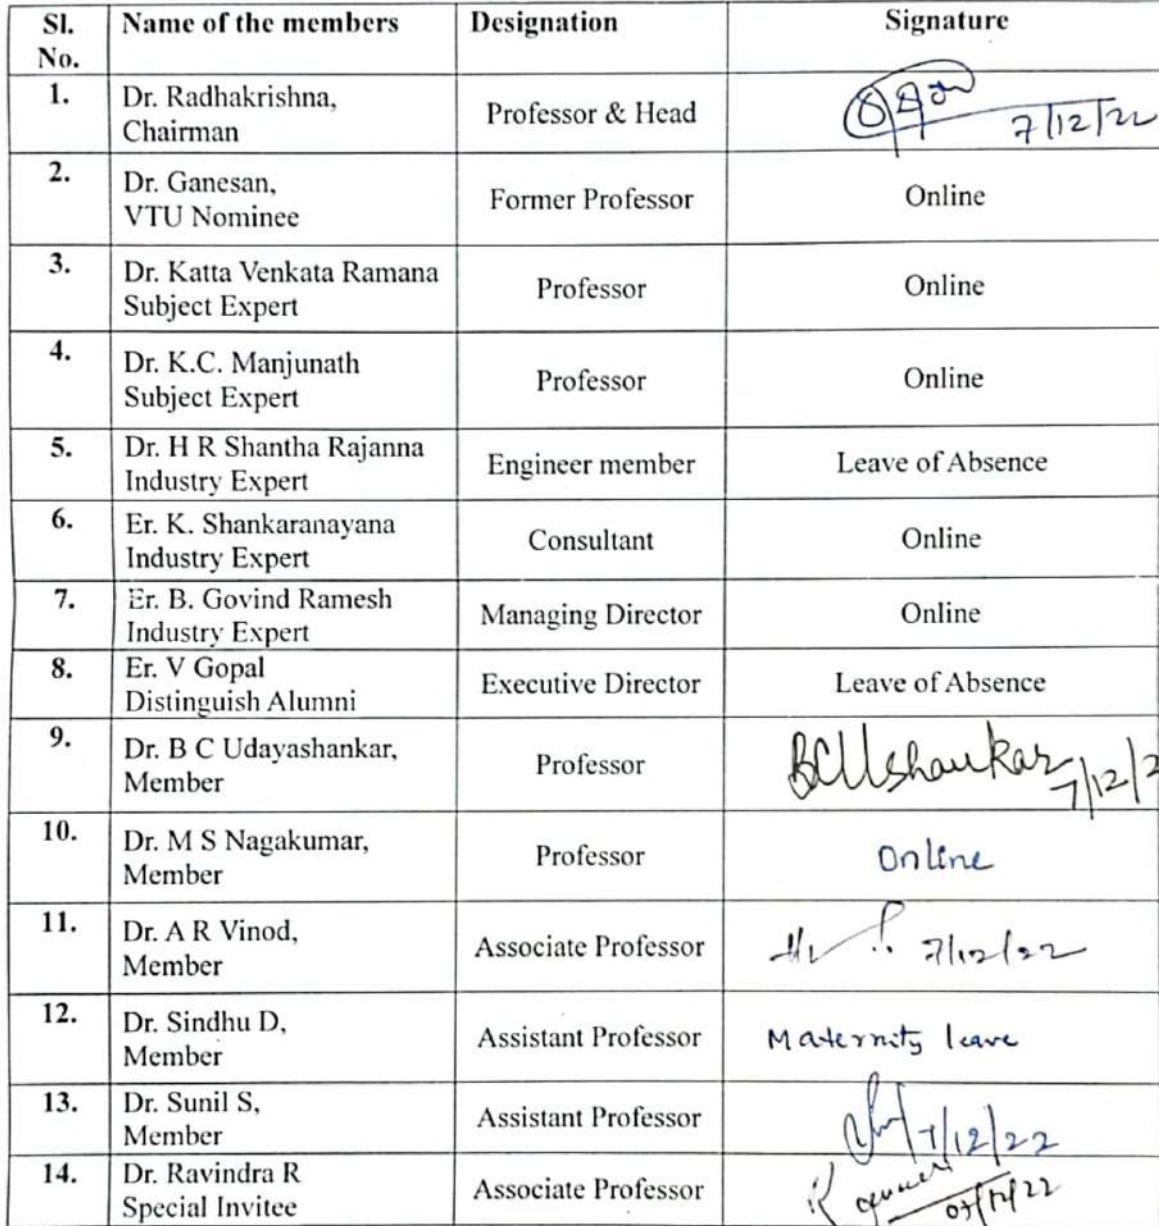 Sl. No. Name of the members Designation Signature
1. Dr. Radhakrishna, Chairman Professor & Head 7/12/22
2. Dr. Ganesan, VTU Nominee Former Professor Online
3. Dr. Katta Venkata Ramana Subject Expert Professor Online
4. Dr. K.C. Manjunath Subject Expert Professor Online
5. Dr. H R Shantha Rajanna Industry Expert Engineer member Leave of Absence
6. Er. K. Shankaranayana Industry Expert Consultant Online
7. Er. B. Govind Ramesh Industry Expert Managing Director Online
8. Er. V Gopal Distinguish Alumni Executive Director Leave of Absence
9. Dr. B C Udayashankar, Member Professor BCUshankar 7/12/2
10. Dr. M S Nagakumar, Member Professor Online
11. Dr. A R Vinod, Member Associate Professor 7/12/22
12. Dr. Sindhu D, Member Assistant Professor Maternity leave
13. Dr. Sunil S, Member Assistant Professor 7/12/22
14. Dr. Ravindra R Special Invitee Associate Professor 07/12/22